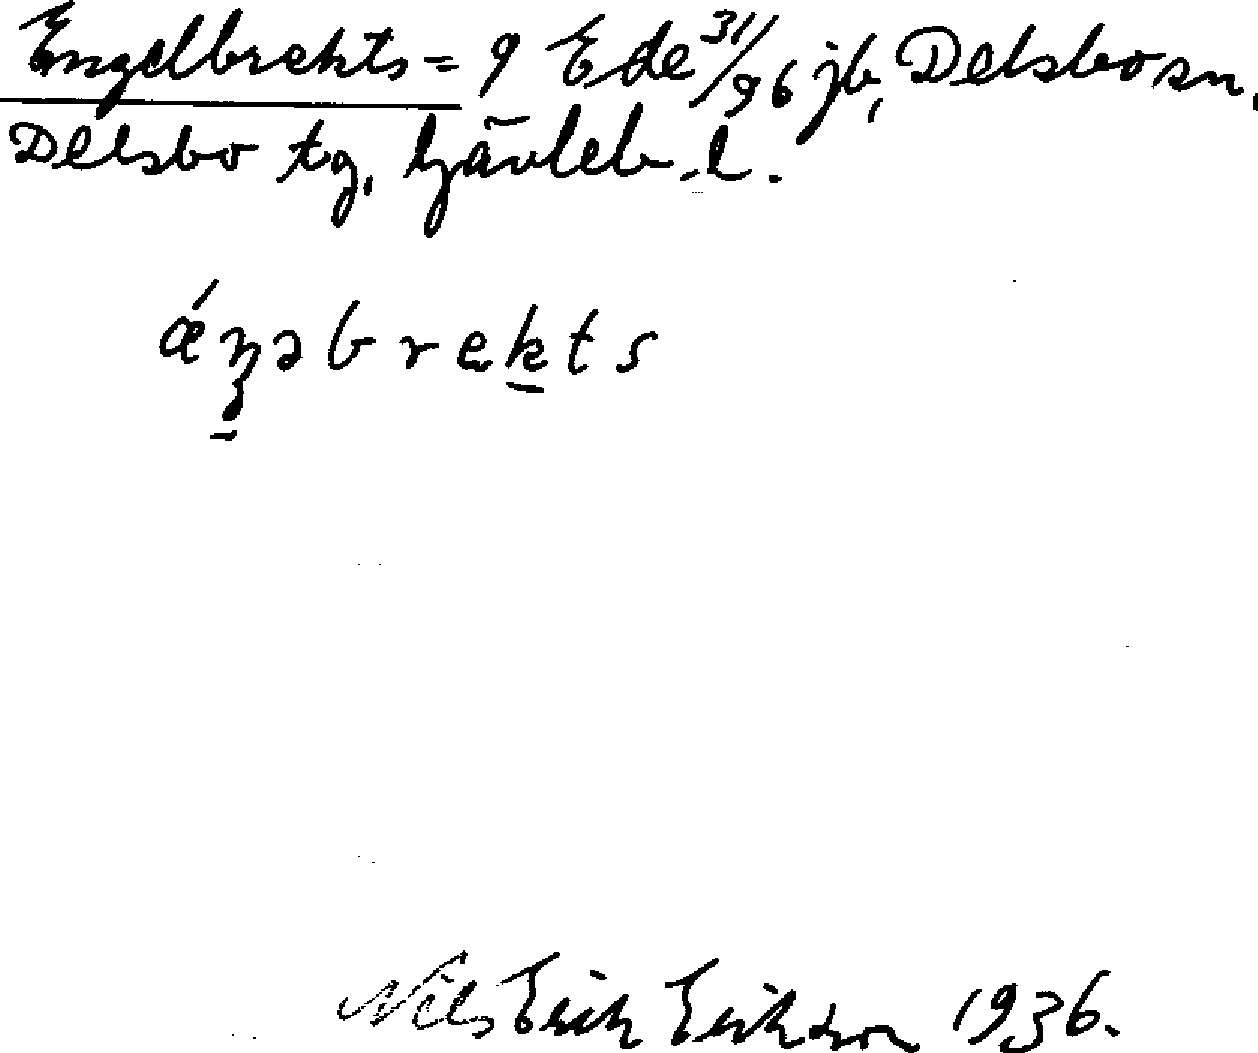 Engelbrekts = 9 Ede 31/96 jb, Delsbo sn,
Delsbo tg, Gävleb. l.
ǽŋəbrekts
Nils Erik Erikson 1936.